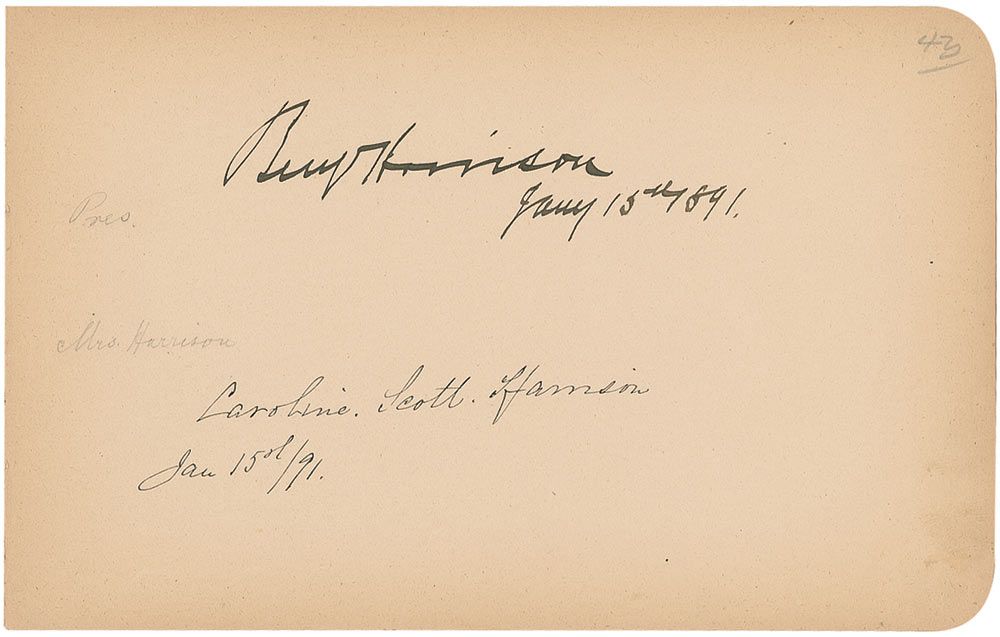 43
Benj Harrison
Jany 15th 1891.
Pres.
Mrs. Harrison
Caroline. Scott. Harrison
Jan 15th/91.